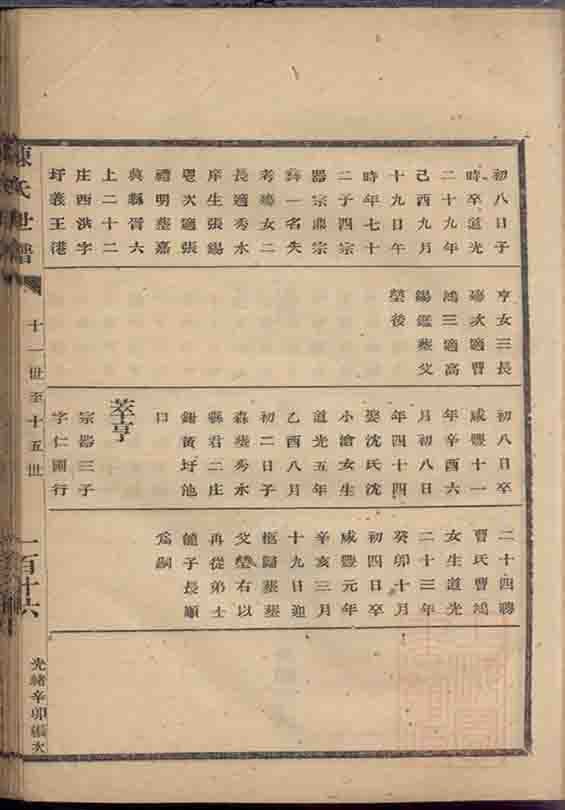 初八日子
時卒道光
二十九年
己酉九月
十九日午
時年七十
二子四宗
器宗鼎宗
彝一名失
考女二
長適秀水
庠生張錫
恩次適張
禮明葬嘉
興縣胥六
上二十二
庄西洪字
圩義王港
亨女三長
殤次適曹
鴻三適高
錫鑑葬父
塋後
初八日卒
咸豐十一
年辛酉六
月初八日
年四十四
娶沈氏沈
小滄女生
道光五年
乙酉八月
初二日子
森葬秀水
縣君二庄
鍾黃圩池
口
莘亨
宗器三子
字仁圃行
二十四聘
曹氏曹鴻
女生道光
二十三年
癸卯十月
初四日卒
咸豐元年
辛亥三月
十九日迎
柩歸葬葬
父塋右以
再從弟士
子長順
為嗣
陳氏世譜
十一世至十五世
一百十六
光緒辛卯編次